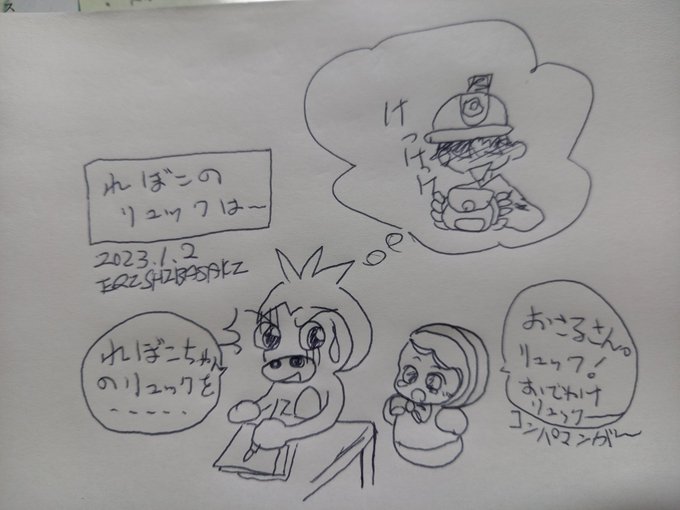 れぼこの
リュックは〜
2023.1.2
ERI SHIBASAKI
けっけっけ
れぼこちゃん
のリュックを
......
おさるさん。
リュック!
おでかけ
リュックー
コンパマンがー